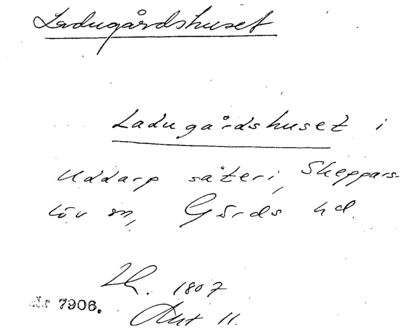 Ladugårdshuset
Ladugårdshuset i
Uddarp säteri, Skeppars-
löv sn, Gärds hd.
1807
Nr 7906.
Akt 11.